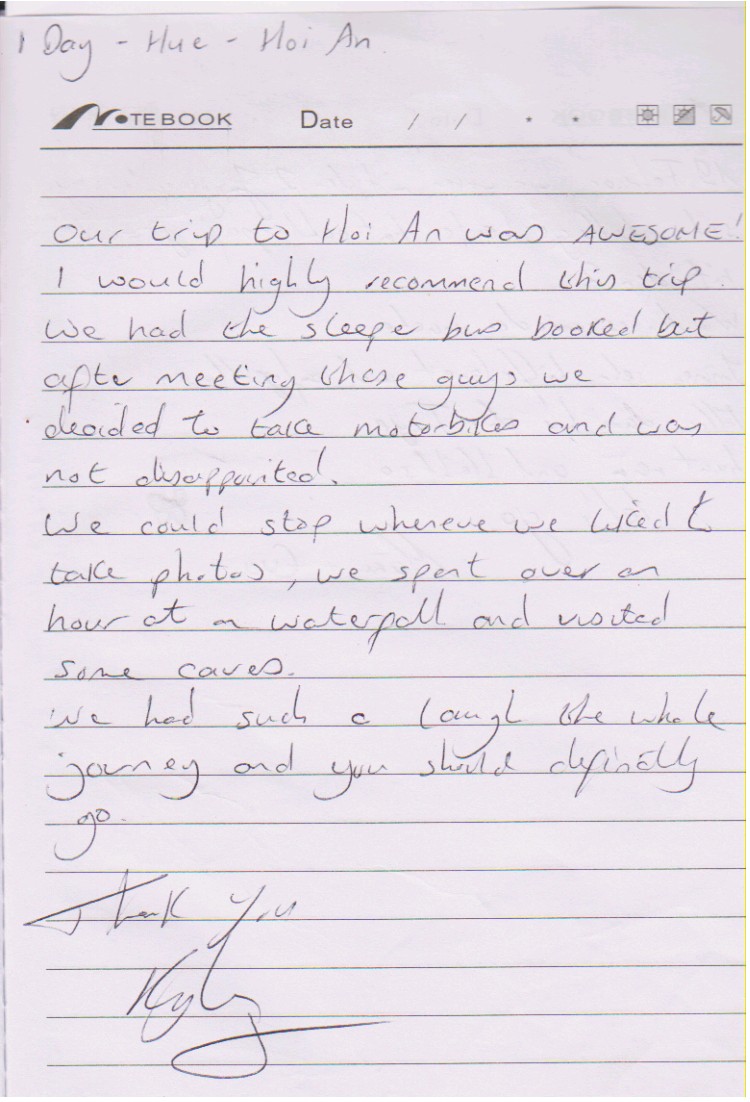 1 Day - Hue - Hoi An
NOTEBOOK Date / / . .
Our trip to Hoi An was AWESOME!
I would highly recommend this trip.
We had the sleeper bus booked but
after meeting these guys we
decided to take motorbikes and was
not disappointed.
We could stop wherever we liked to
take photos, we spent over an
hour at a waterfall and visited
some caves.
We had such a laugh the whole
journey and you should definitly
go.
Thank You